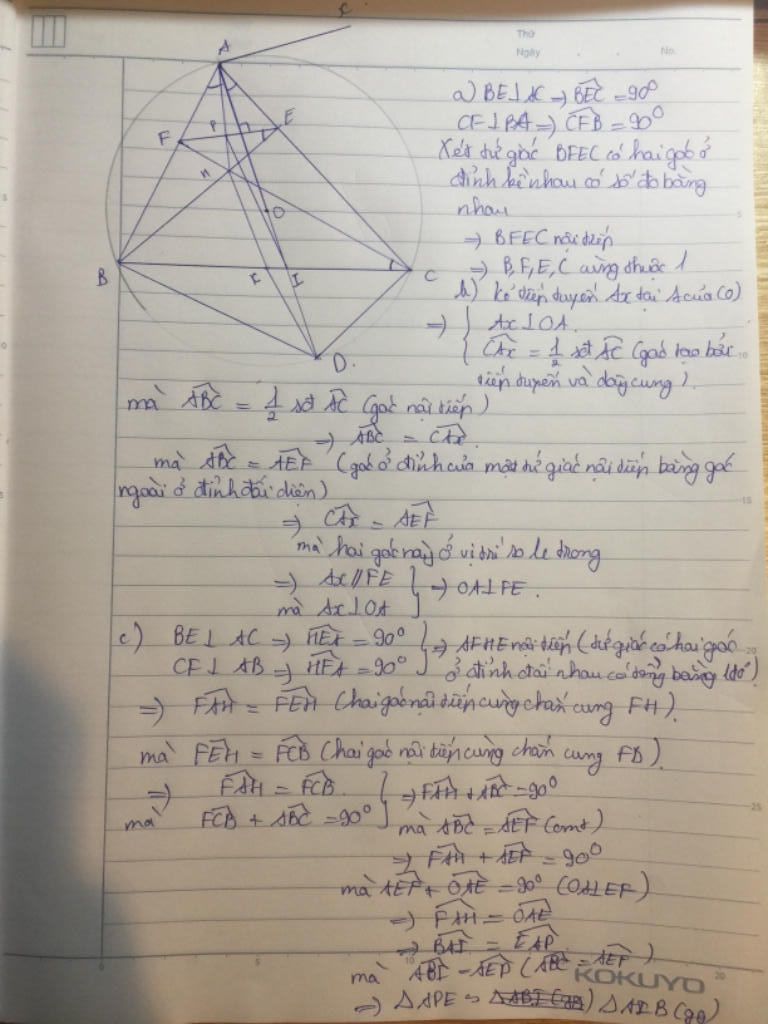 x
Thứ
Ngày
No.
A
F
P
E
H
O
B
I
C
D.
a) BE⊥AC ⇒ BEC = 90°
CF⊥BA ⇒ CFB = 90°
Xét tứ giác BFEC có hai góc ở
đỉnh kề nhau có số đo bằng
nhau
⇒ BFEC nội tiếp
⇒ B,F,E,C cùng thuộc 1
b) Kẻ tiếp tuyến Ax tại A của (O)
⇒ { Ax⊥OA.
CAx = 1/2 sđ AC (góc tạo bởi
tiếp tuyến và dây cung).
mà ABC = 1/2 sđ AC (góc nội tiếp)
⇒ ABC = CAx.
mà ABC = AEF (góc ở đỉnh của một tứ giác nội tiếp bằng góc
ngoài ở đỉnh đối diện)
⇒ CAx = AEF
mà hai góc này ở vị trí so le trong
⇒ Ax//FE } ⇒ OA⊥FE.
mà Ax⊥OA
c) BE⊥AC ⇒ HEA = 90° } ⇒ AFHE nội tiếp (tứ giác có hai góc
CF⊥AB ⇒ HFA = 90° ở đỉnh đối nhau có tổng bằng 180°)
⇒ FAH = FEH (hai góc nội tiếp cùng chắn cung FH).
mà FEH = FCB (hai góc nội tiếp cùng chắn cung FB)
⇒ FAH = FCB. } ⇒ FAH + ABC = 90°
mà FCB + ABC = 90°
mà ABC = AEF (cmt)
⇒ FAH + AEF = 90°
mà AEF + OAE = 90° (OA⊥EF)
⇒ FAH = OAE
⇒ BAI = EAP
mà ABI = AEP (ABC = AEF)
KOKUYO
⇒ △APE ∽ △AIB (gg)